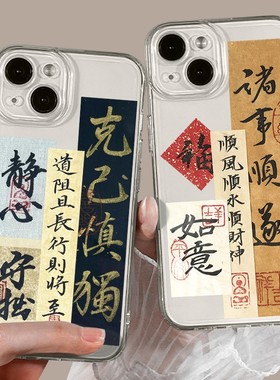 克己慎獨
道阻且長行則將至
靜心
守拙
諸事順遂
順風順水順財神
福
如意